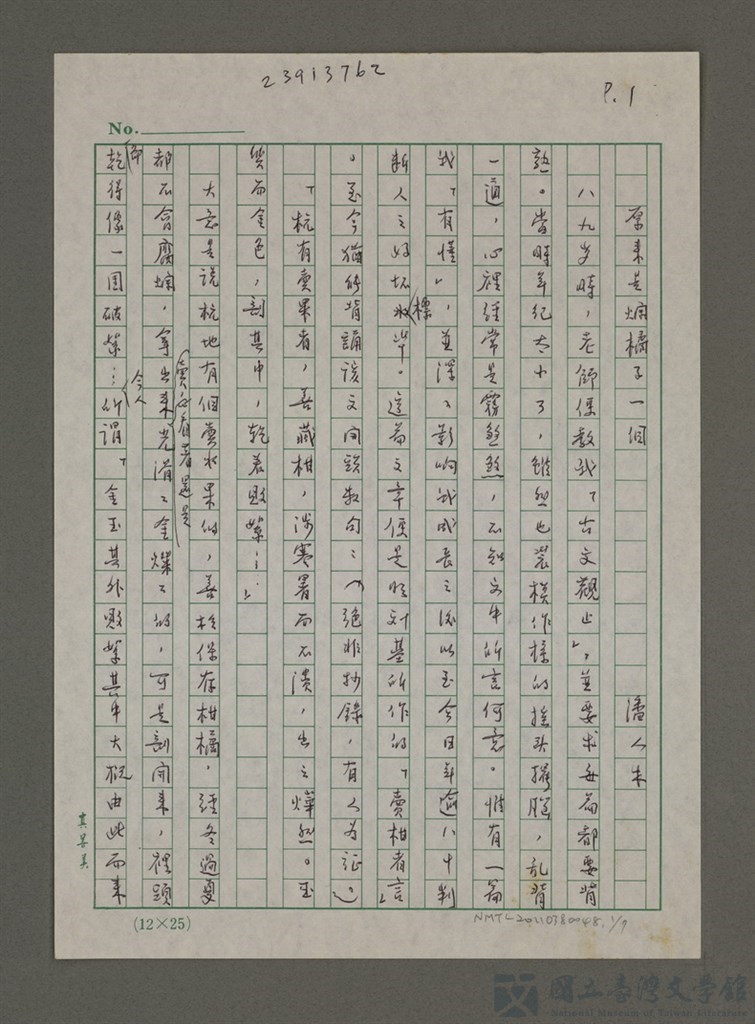 23913762
P.1
No.
原來是爛橘子一個
潘人木
八九岁時，老師便教我「古文觀止」，並要求每篇都要背
熟。當時年紀太小了，雖然也裝模作樣的搖头擺腦，乱背
一通，心裡經常是霧煞煞，不知文中所言何意。惟有一篇
我「有懂」，並深深影响我成長之後以至今日年逾八十判
斷人之好坏標準。這篇文章便是明刘基所作的「賣柑者言」
。至今猶能背誦該文開頭數句：（絕非抄錄，有人为証。）
「杭有賣果者，善藏柑，涉寒暑而不潰，出之燁然。玉
質而金色，剖其中，乾若敗絮…」
大意是說杭地有個賣水果的，善於保存柑橘，經冬過夏
賣的看着還是
都不會腐爛，拿出來光滑滑金燦燦的，可是剖開來，裡頭
卻乾得像一團破絮…令人所謂「金玉其外敗絮其中大概由此而來
其果真
(12×25)
NMTL20110380048.1/7
國立臺灣文學館
National Museum of Taiwan Literature